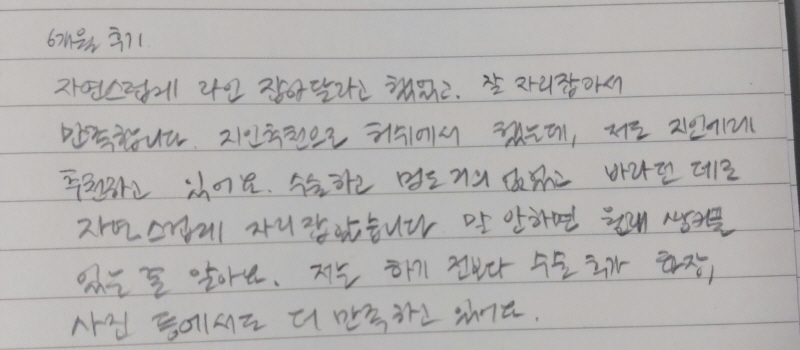 6개월 후기
자연스럽게 라인 잡아달라고 했었고, 잘 자리잡아서
만족합니다. 지인추천으로 허쉬에서 했는데, 저도 지인에게
추천하고 있어요. 수술하고 멍도 거의 없었고 바라던 데로
자연스럽게 자리잡았습니다 말 안하면 원래 쌍커플
있는 줄 알아요. 저는 하기 전보다 수술 후가 화장,
사진 등에서도 더 만족하고 있어요.